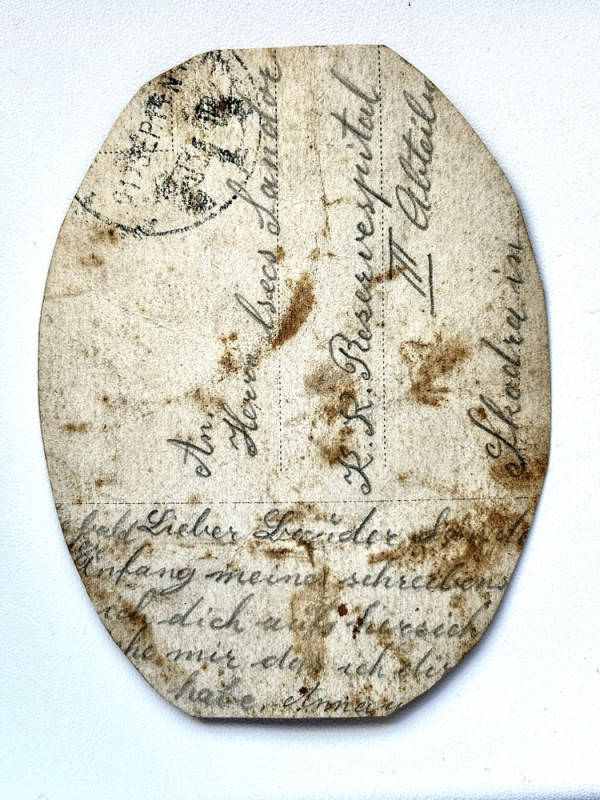 SEPTEN
An.
Herrn Csecs Sandor
K. K. Reservespital
III Abteilu
Skodra in
bald Lieber Bruder
Anfang meines schreibens
ich dich aufs herzlich
he mir das ich dir
habe. Anna